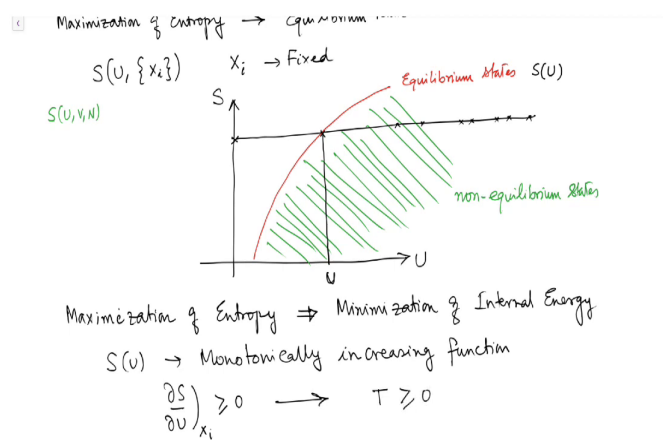 Maximization of Entropy →
S(U, {Xi}) Xi → Fixed
Equilibrium States S(U)
S
S(U,V,N)
non-equilibrium States
U
U
Maximization of Entropy ⇒ Minimization of Internal Energy
S(U) → Monotonically increasing function
∂S/∂U)Xi ≥ 0 → T ≥ 0